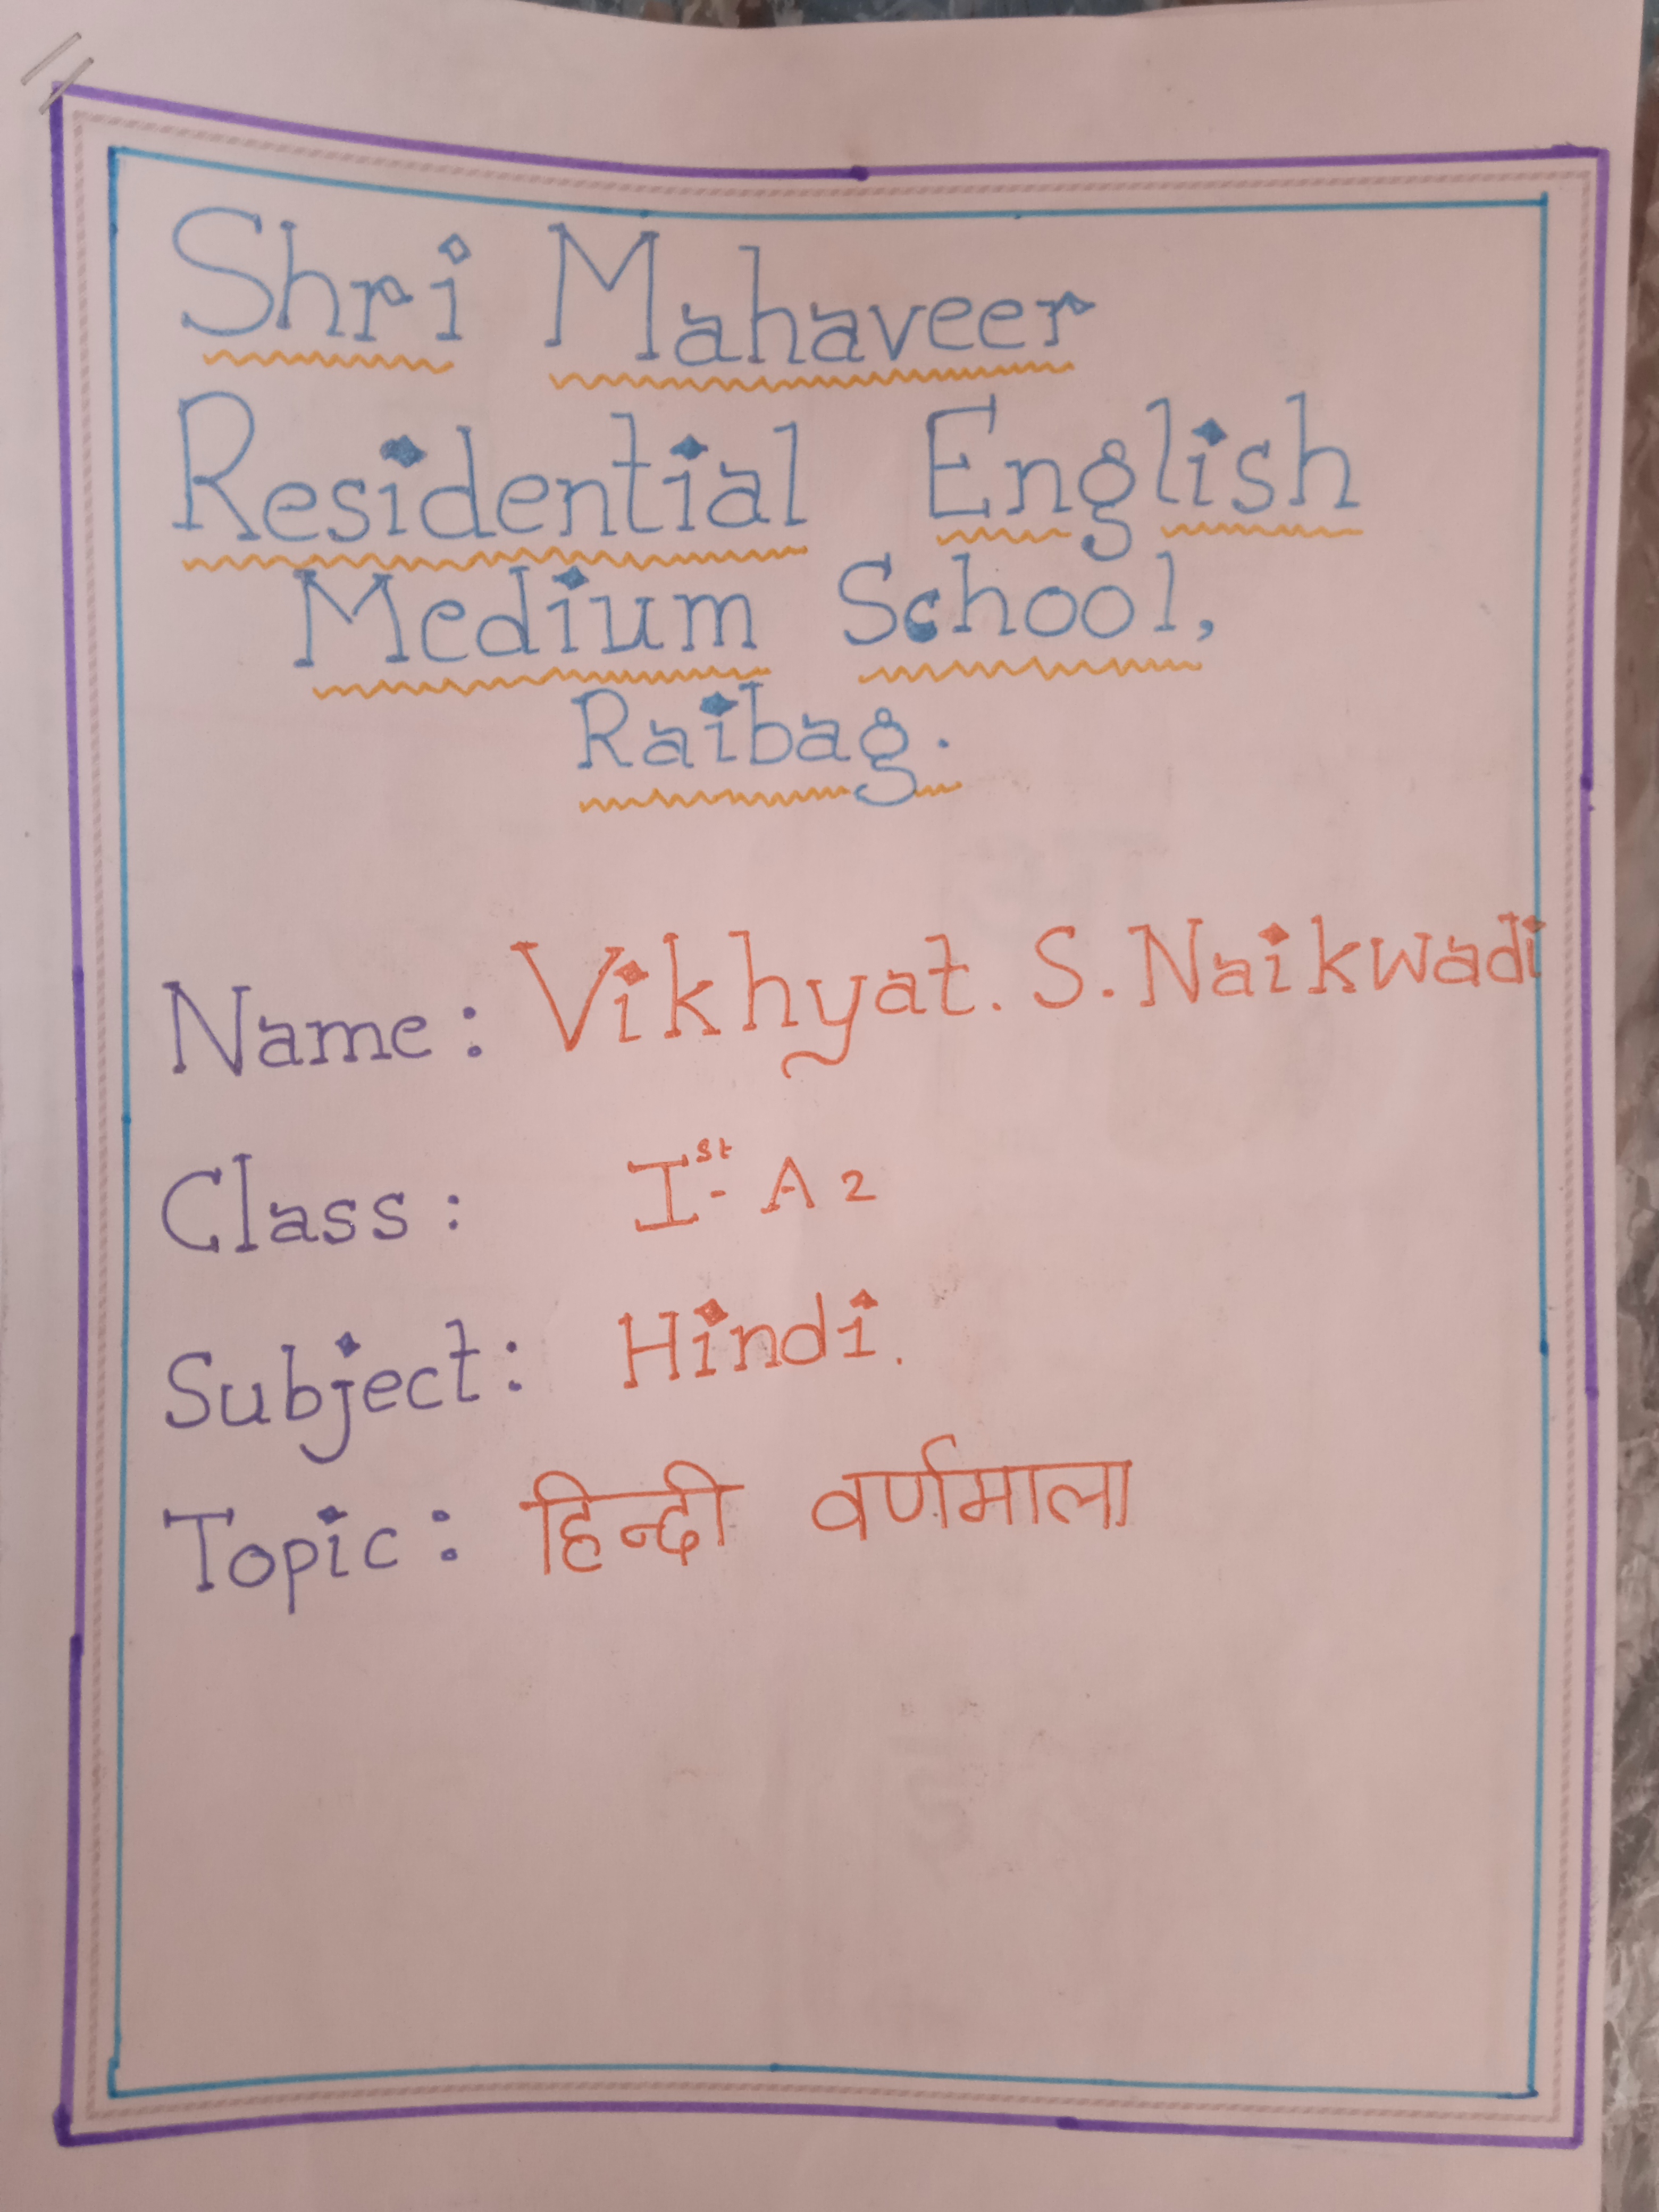 Shri Mahaveer
Residential English
Medium School,
Raibag.
Name: Vikhyat. S. Naikwadi
Class: Ist - A2
Subject: Hindi.
Topic: हिन्दी वर्णमाला